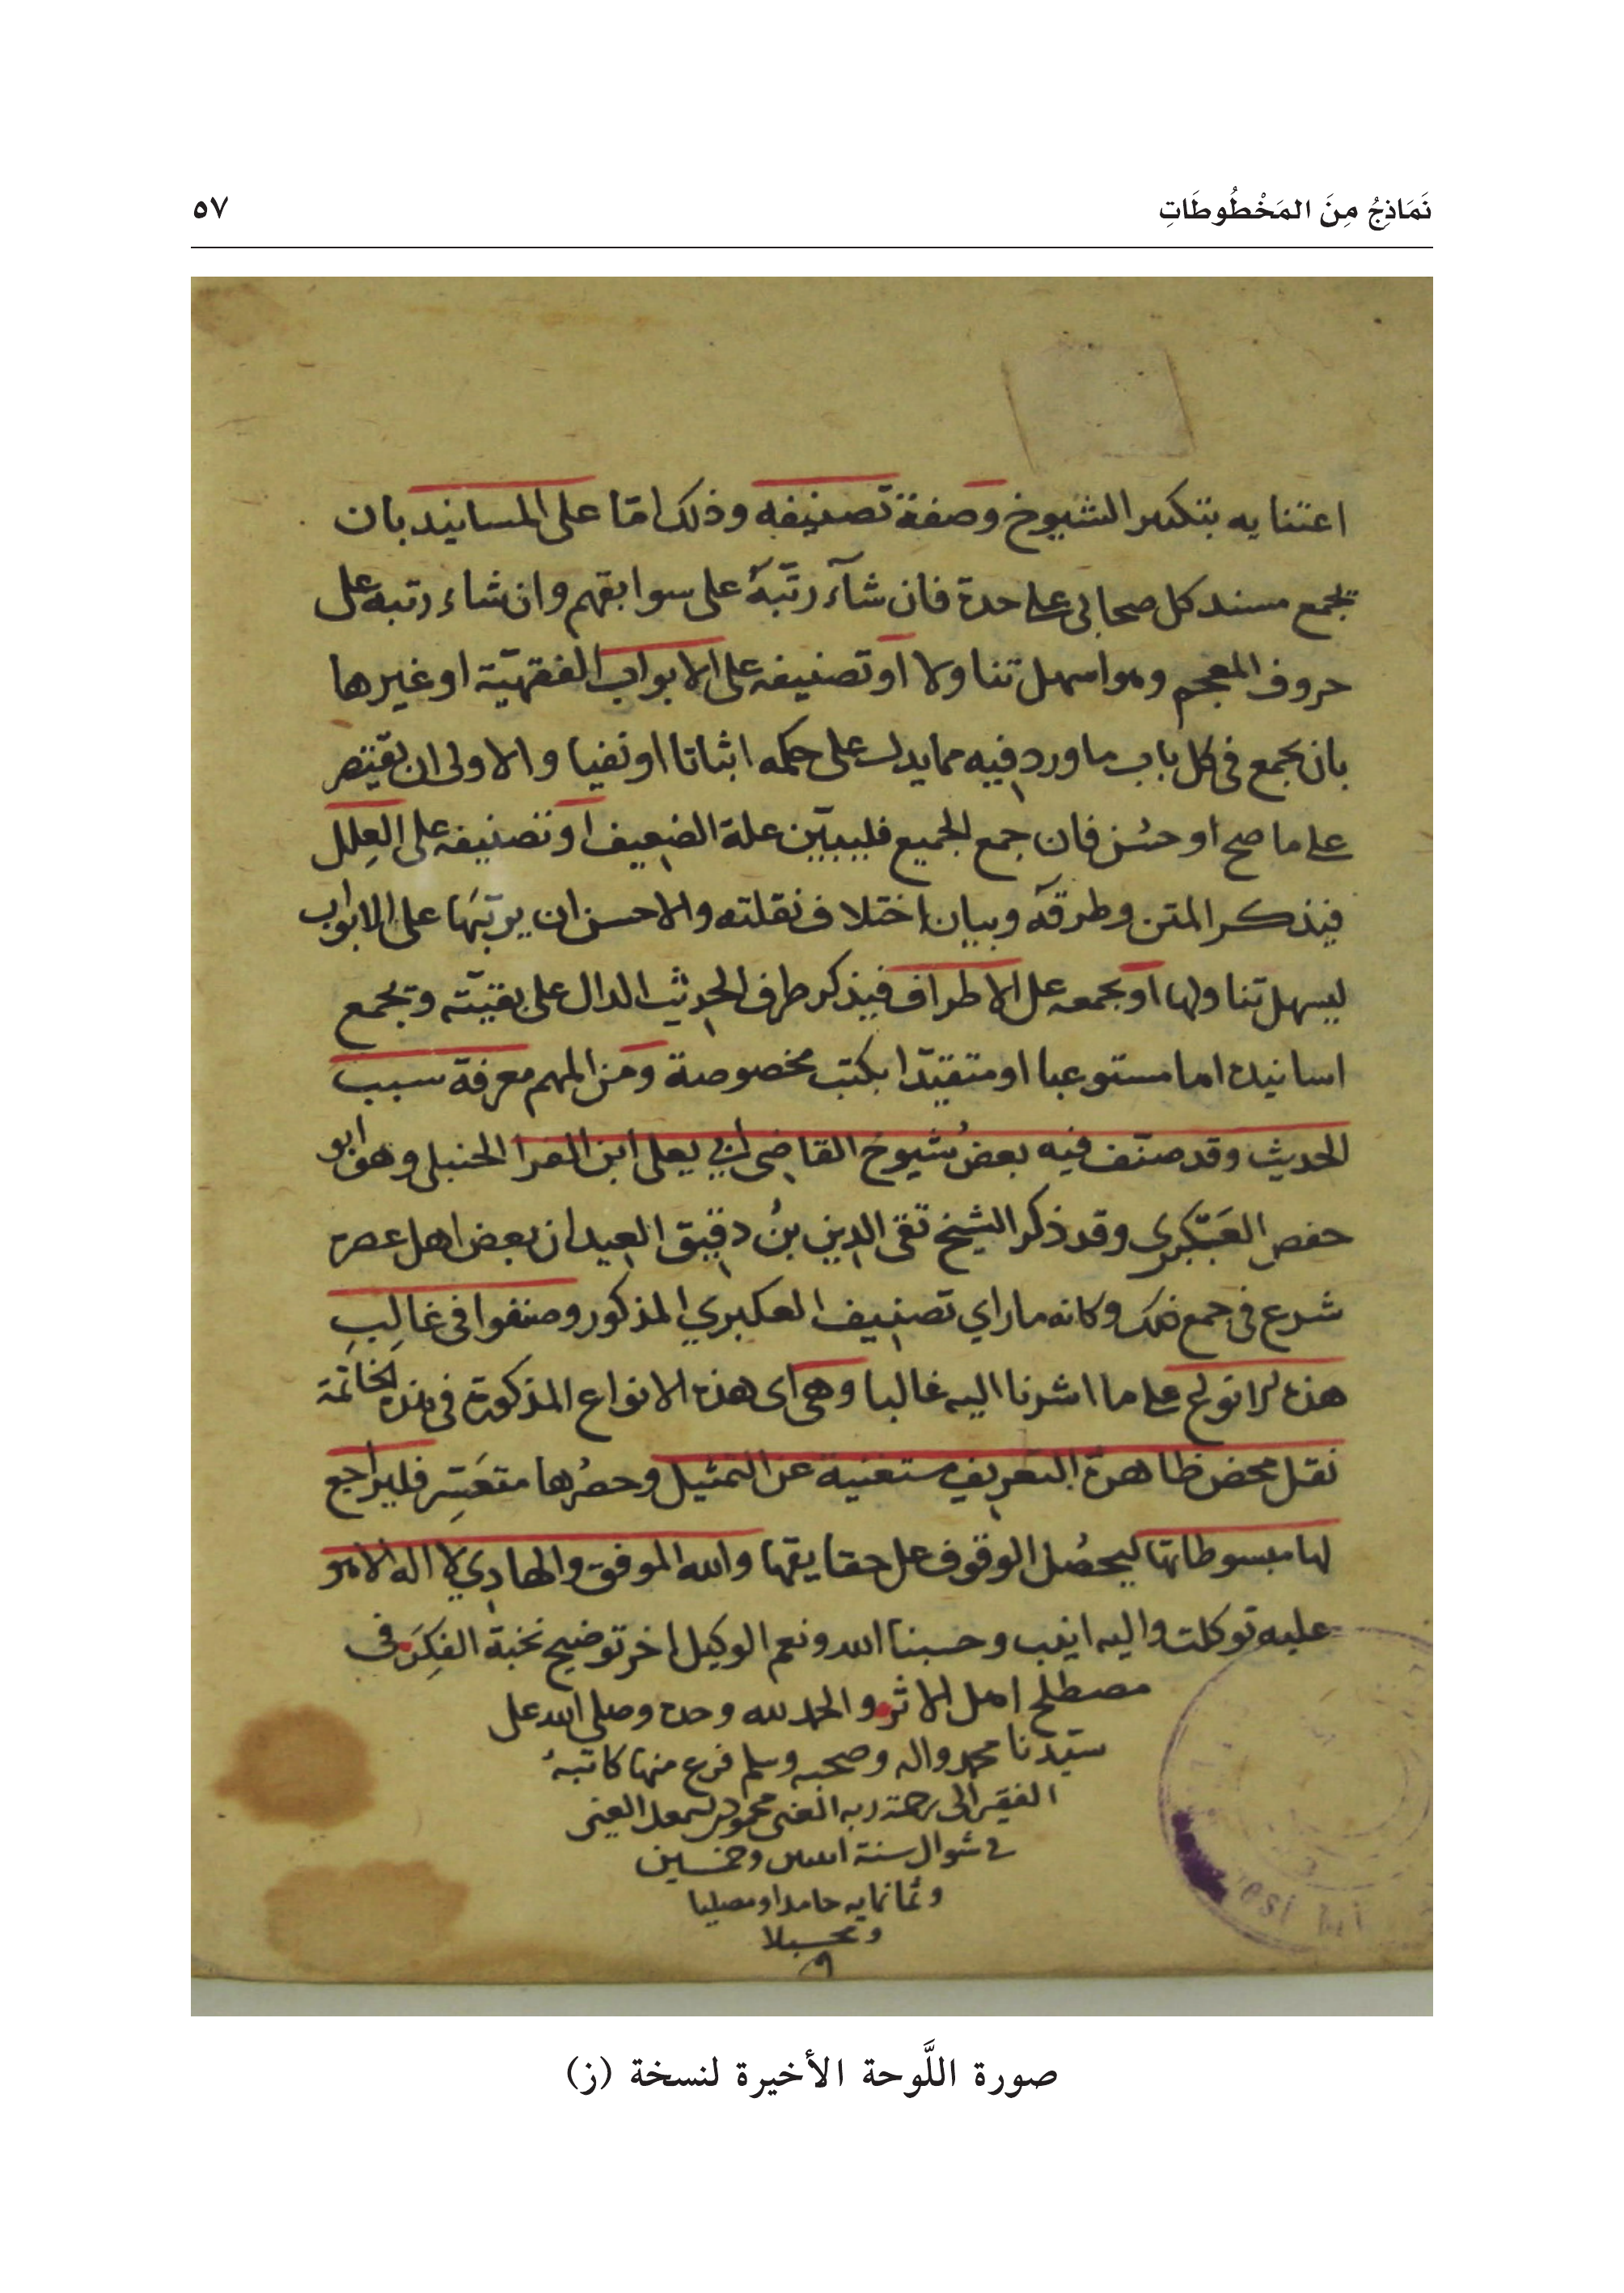 نَمَاذِجُ مِنَ المَخْطُوطَاتِ
٥٧
اعتنايه بتكثير الشيوخ وصفة تصنيفه وذلك امّا على المسانيد بان
يجمع مسند كل صحابي على حدة فان شآء رتّبهُ على سوابقهم وان شاء رتبه على
حروف المعجم وهو اسهل تناولا او تصنيفه على الابواب الفقهيّة او غيرها
بان يجمع في كل باب ما ورد فيه مما يدل على حكمه اثباتا او نفيا والاولى ان يقتصر
على ما صح او حسُن فان جمع الجميع فليبيّن علة الضعيف او تصنيفه على العِلل
فيذكر المتن وطرقه وبيان اختلاف نقلته والاحسن ان يرتبَها على الابواب
ليسهل تناولها او يجمعه على الاطراف فيذكر طرف الحديث الدال على بقيّته ويجمع
اسانيده اما مستوعبا او متقيّدا بكتب مخصوصة ومن المهم معرفة سبب
الحديث وقد صنّف فيه بعضُ شيوخ القاضي ابي يعلى ابن الفرا الحنبلي وهو ابو
حفص العكبري وقد ذكر الشيخ تقي الدين بنُ دقيق العيد ان بعض اهل عصره
شرع في جمع ذلك وكانه ما راي تصنيف العكبري المذكور وصنفوا في غالِبِ
هذه الانواع على ما اشرنا اليه غالبا وهي اى هذه الانواع المذكورة في هذه الخاتمة
نقل محض ظاهرة التعريف مستغنية عن التمثيل وحصرُها متعَسِّر فليراجع
لها مبسوطاتها ليحصُل الوقوف على حقايقها والله الموفق والهادي لا اله الا هو
عليه توكلت واليه انيب وحسبنا الله ونعم الوكيل اخر توضيح نخبة الفِكَر في
مصطلح اهل الاثر والحمد لله وحده وصلى الله على
سيّدنا محمد واله وصحبه وسلم فرغ منها كاتبهُ
الفقير الى رحمة ربه الغنى محمود العينى
في شوال سنة وخمسين
وثمانمايه حامدا ومصليا
صورة اللَّوحة الأخيرة لنسخة (ز)